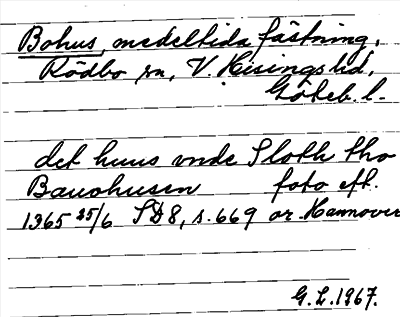 Bohus, medeltida fästning,
Rödbo sn, V. Hisings hd,
Göteb. l.
det huus vnde Sloth tho
Bauohusen foto eft.
1365 25/6 SD8, s. 669 or. Hannover
G. L. 1967.